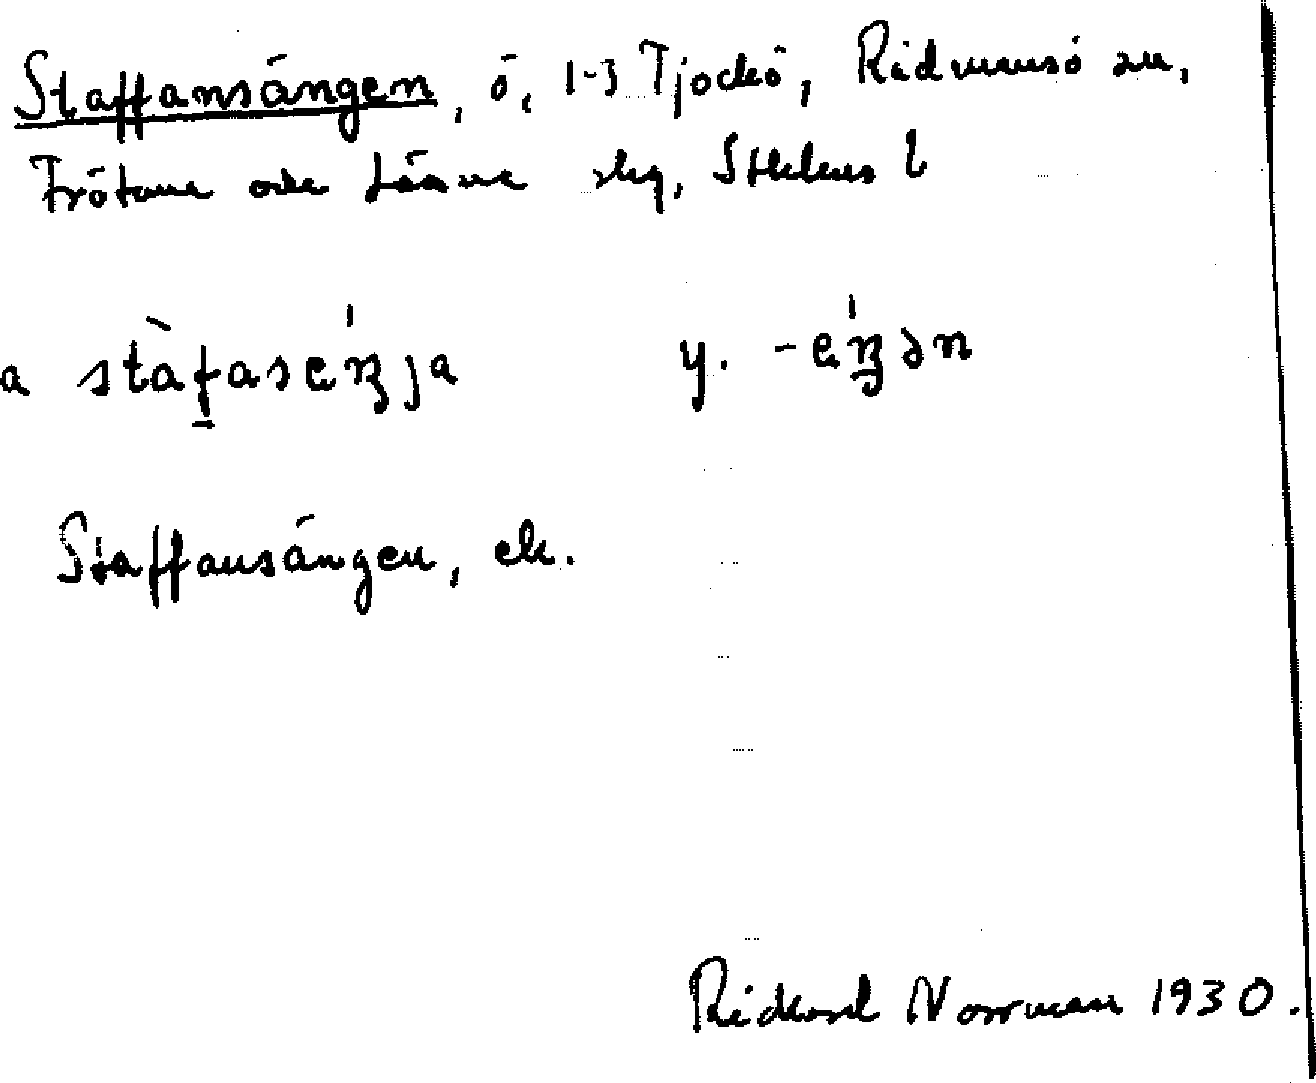 Staffansängen, ö, 1-3 Tjockö, Rådmansö sn,
Frötuna och Länna skg, Sthlms l
a stàf̱asɛŋja y. -ɛŋən
Staffansängen, ek.
Rickard Norrman 1930.